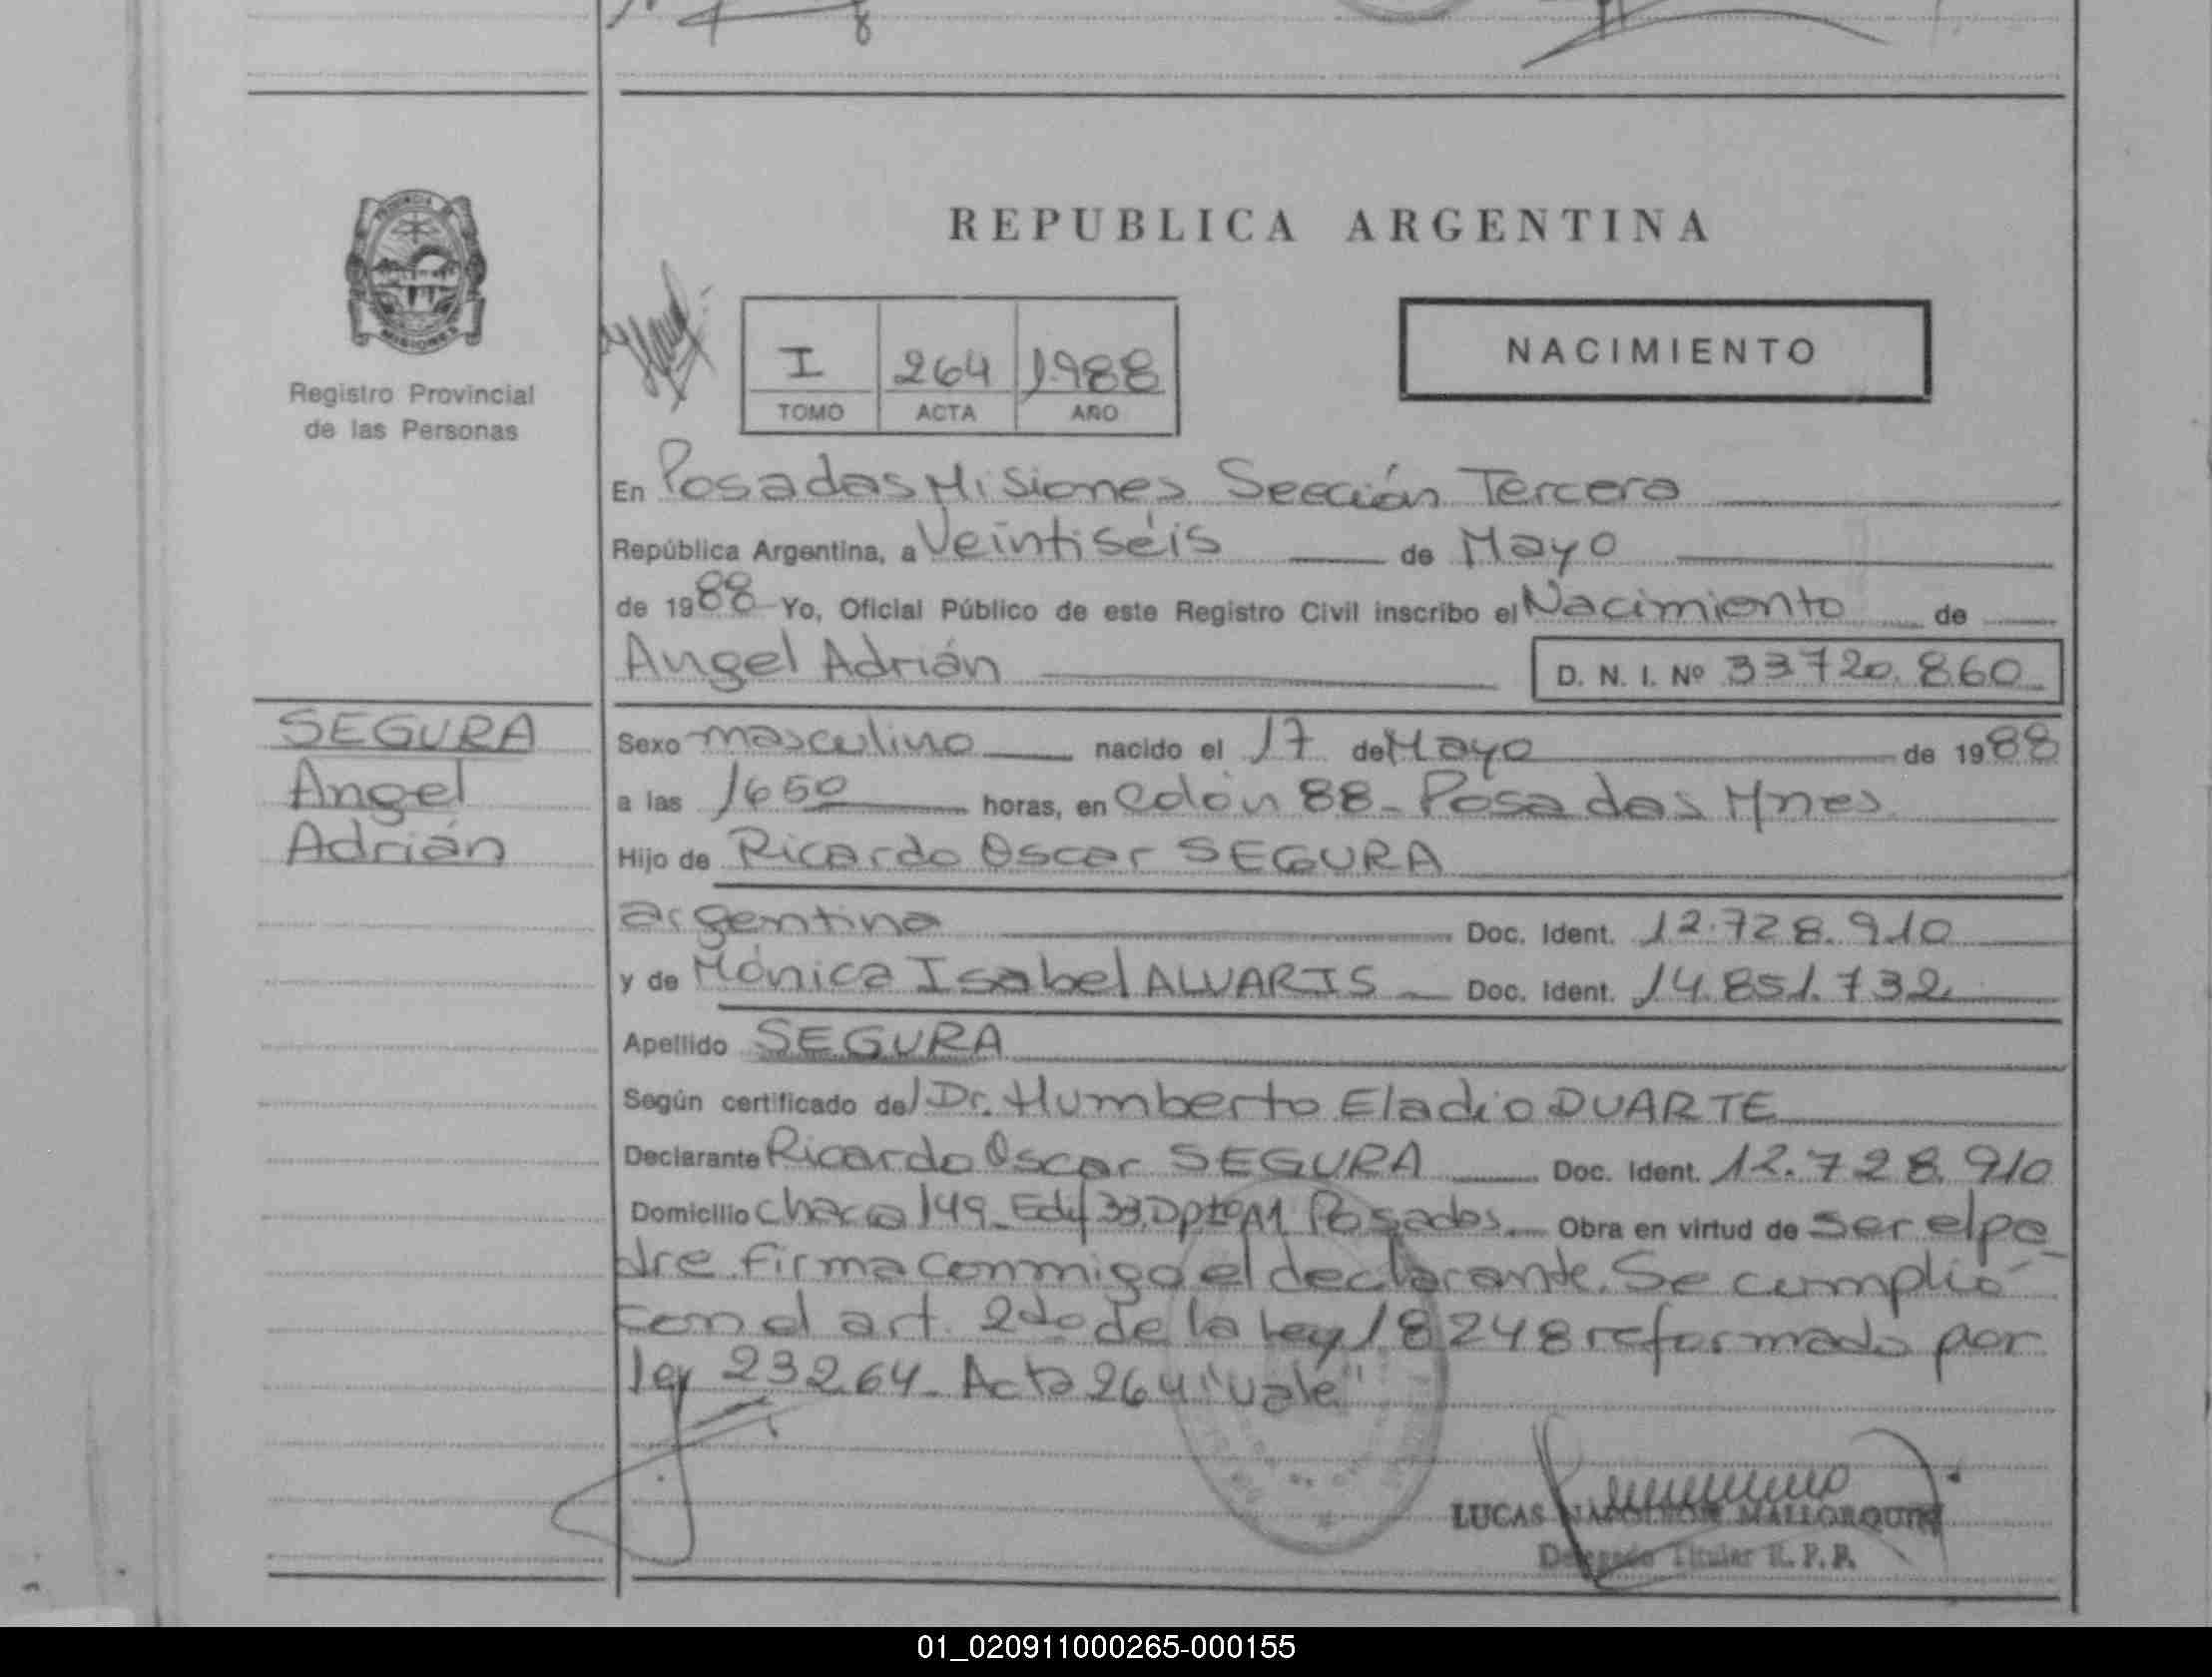 PROVINCIA
MISIONES
Registro Provincial
de las Personas
REPUBLICA ARGENTINA
I 264 1988
TOMO ACTA AÑO
NACIMIENTO
En Posadas Misiones Sección Tercera
República Argentina, a Veintiséis de Mayo
de 1988 Yo, Oficial Público de este Registro Civil inscribo el Nacimiento de
Angel Adrián D. N. I. Nº 33720.860
SEGURA
Angel
Adrián
Sexo masculino nacido el 17 de Mayo de 1988
a las 1650 horas, en Colón 88 - Posadas Mnes.
Hijo de Ricardo Oscar SEGURA
argentina Doc. Ident. 12.728.910
y de Mónica Isabel ALVARIS Doc. Ident. 14.851.732
Apellido SEGURA
Según certificado del Dr. Humberto Eladio DUARTE
Declarante Ricardo Oscar SEGURA Doc. Ident. 12.728.910
Domicilio Chacra 149 - Edif 33. Dpto A1 Posadas. Obra en virtud de ser el pa
dre. Firma conmigo el declarante. Se cumplió
con el art. 2do de la Ley 18248 reformado por
ley 23264 - Acta 264 "vale"
LUCAS NAPOLEON MALLORQUIN
Delegado Titular R. P. P.
01_020911000265-000155